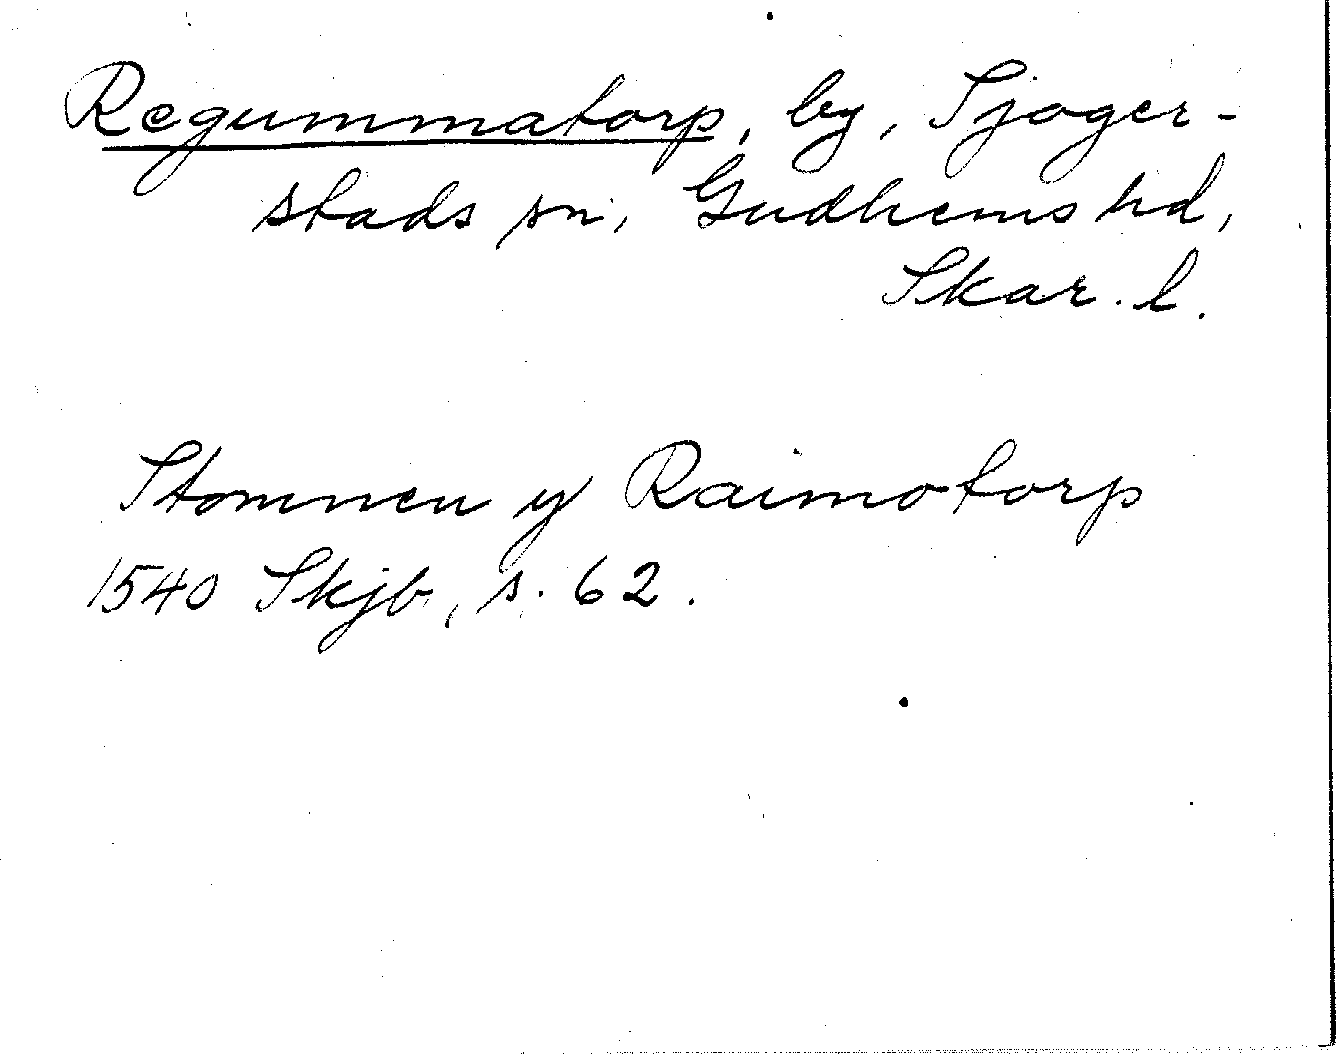 Regummatorp, by, Sjoger-
stads sn, Gudhems hd,
Skar. l.
Stommen y Raimotorp
1540 Skjb, s. 62.